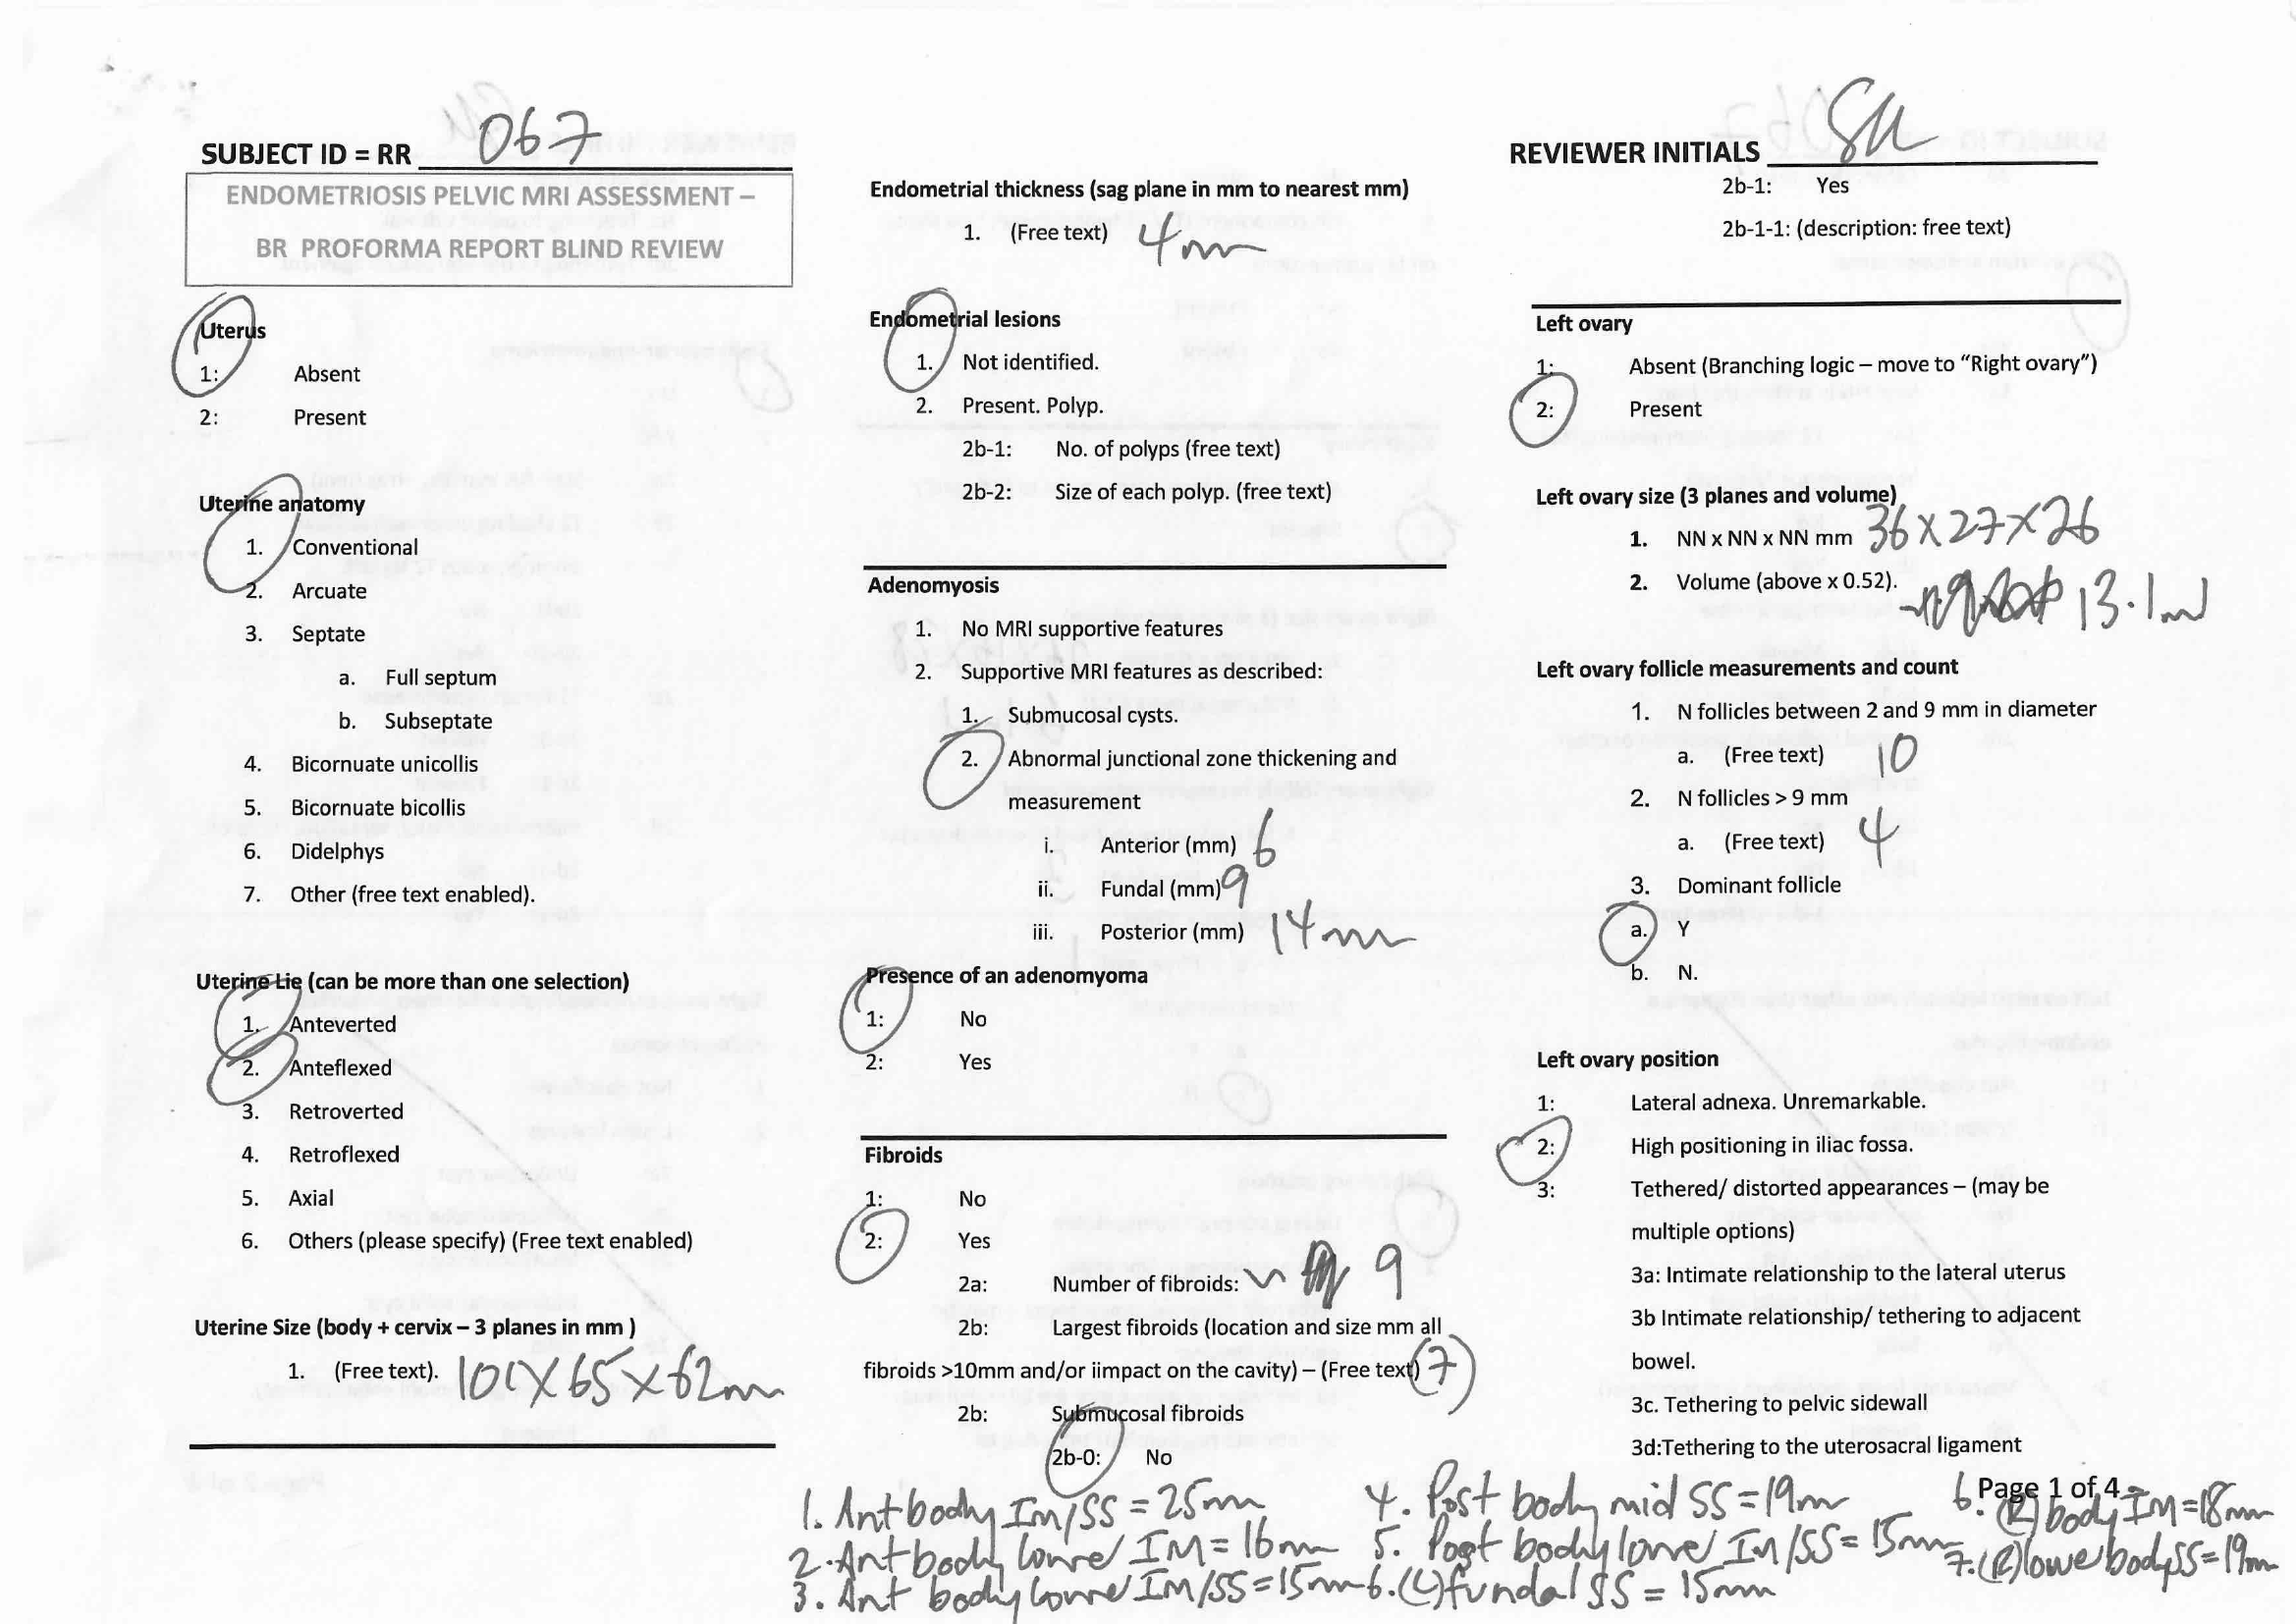 SUBJECT ID = RR 067
ENDOMETRIOSIS PELVIC MRI ASSESSMENT –
BR PROFORMA REPORT BLIND REVIEW
Uterus
1: Absent
2: Present
Uterine anatomy
1. Conventional
2. Arcuate
3. Septate
a. Full septum
b. Subseptate
4. Bicornuate unicollis
5. Bicornuate bicollis
6. Didelphys
7. Other (free text enabled).
Uterine Lie (can be more than one selection)
1. Anteverted
2. Anteflexed
3. Retroverted
4. Retroflexed
5. Axial
6. Others (please specify) (Free text enabled)
Uterine Size (body + cervix – 3 planes in mm )
1. (Free text). 101 X 65 X 62mm
Endometrial thickness (sag plane in mm to nearest mm)
1. (Free text) 4mm
Endometrial lesions
1. Not identified.
2. Present. Polyp.
2b-1: No. of polyps (free text)
2b-2: Size of each polyp. (free text)
Adenomyosis
1. No MRI supportive features
2. Supportive MRI features as described:
1. Submucosal cysts.
2. Abnormal junctional zone thickening and
measurement
i. Anterior (mm) 6
ii. Fundal (mm) 9
iii. Posterior (mm) 14mm
Presence of an adenomyoma
1: No
2: Yes
Fibroids
1: No
2: Yes
2a: Number of fibroids: 9
2b: Largest fibroids (location and size mm all
fibroids >10mm and/or iimpact on the cavity) – (Free text) 7
2b: Submucosal fibroids
2b-0: No
REVIEWER INITIALS
2b-1: Yes
2b-1-1: (description: free text)
Left ovary
1: Absent (Branching logic – move to “Right ovary”)
2: Present
Left ovary size (3 planes and volume)
1. NN x NN x NN mm 36 X 27 X 26
2. Volume (above x 0.52). 13.1ml
Left ovary follicle measurements and count
1. N follicles between 2 and 9 mm in diameter
a. (Free text) 10
2. N follicles > 9 mm
a. (Free text) 4
3. Dominant follicle
a. Y
b. N.
Left ovary position
1: Lateral adnexa. Unremarkable.
2: High positioning in iliac fossa.
3: Tethered/ distorted appearances – (may be
multiple options)
3a: Intimate relationship to the lateral uterus
3b Intimate relationship/ tethering to adjacent
bowel.
3c. Tethering to pelvic sidewall
3d:Tethering to the uterosacral ligament
Page 1 of 4
1. Ant body Im/SS = 25mm
2. Ant body lower IM = 16mm
3. Ant body lower IM/SS = 15mm
4. Post body mid SS = 19m
5. Post body lower Im/SS = 15mm
6. (L) fundal SS = 15mm
6. (R) body IM = 18mm
7. (R) lower body SS = 19m